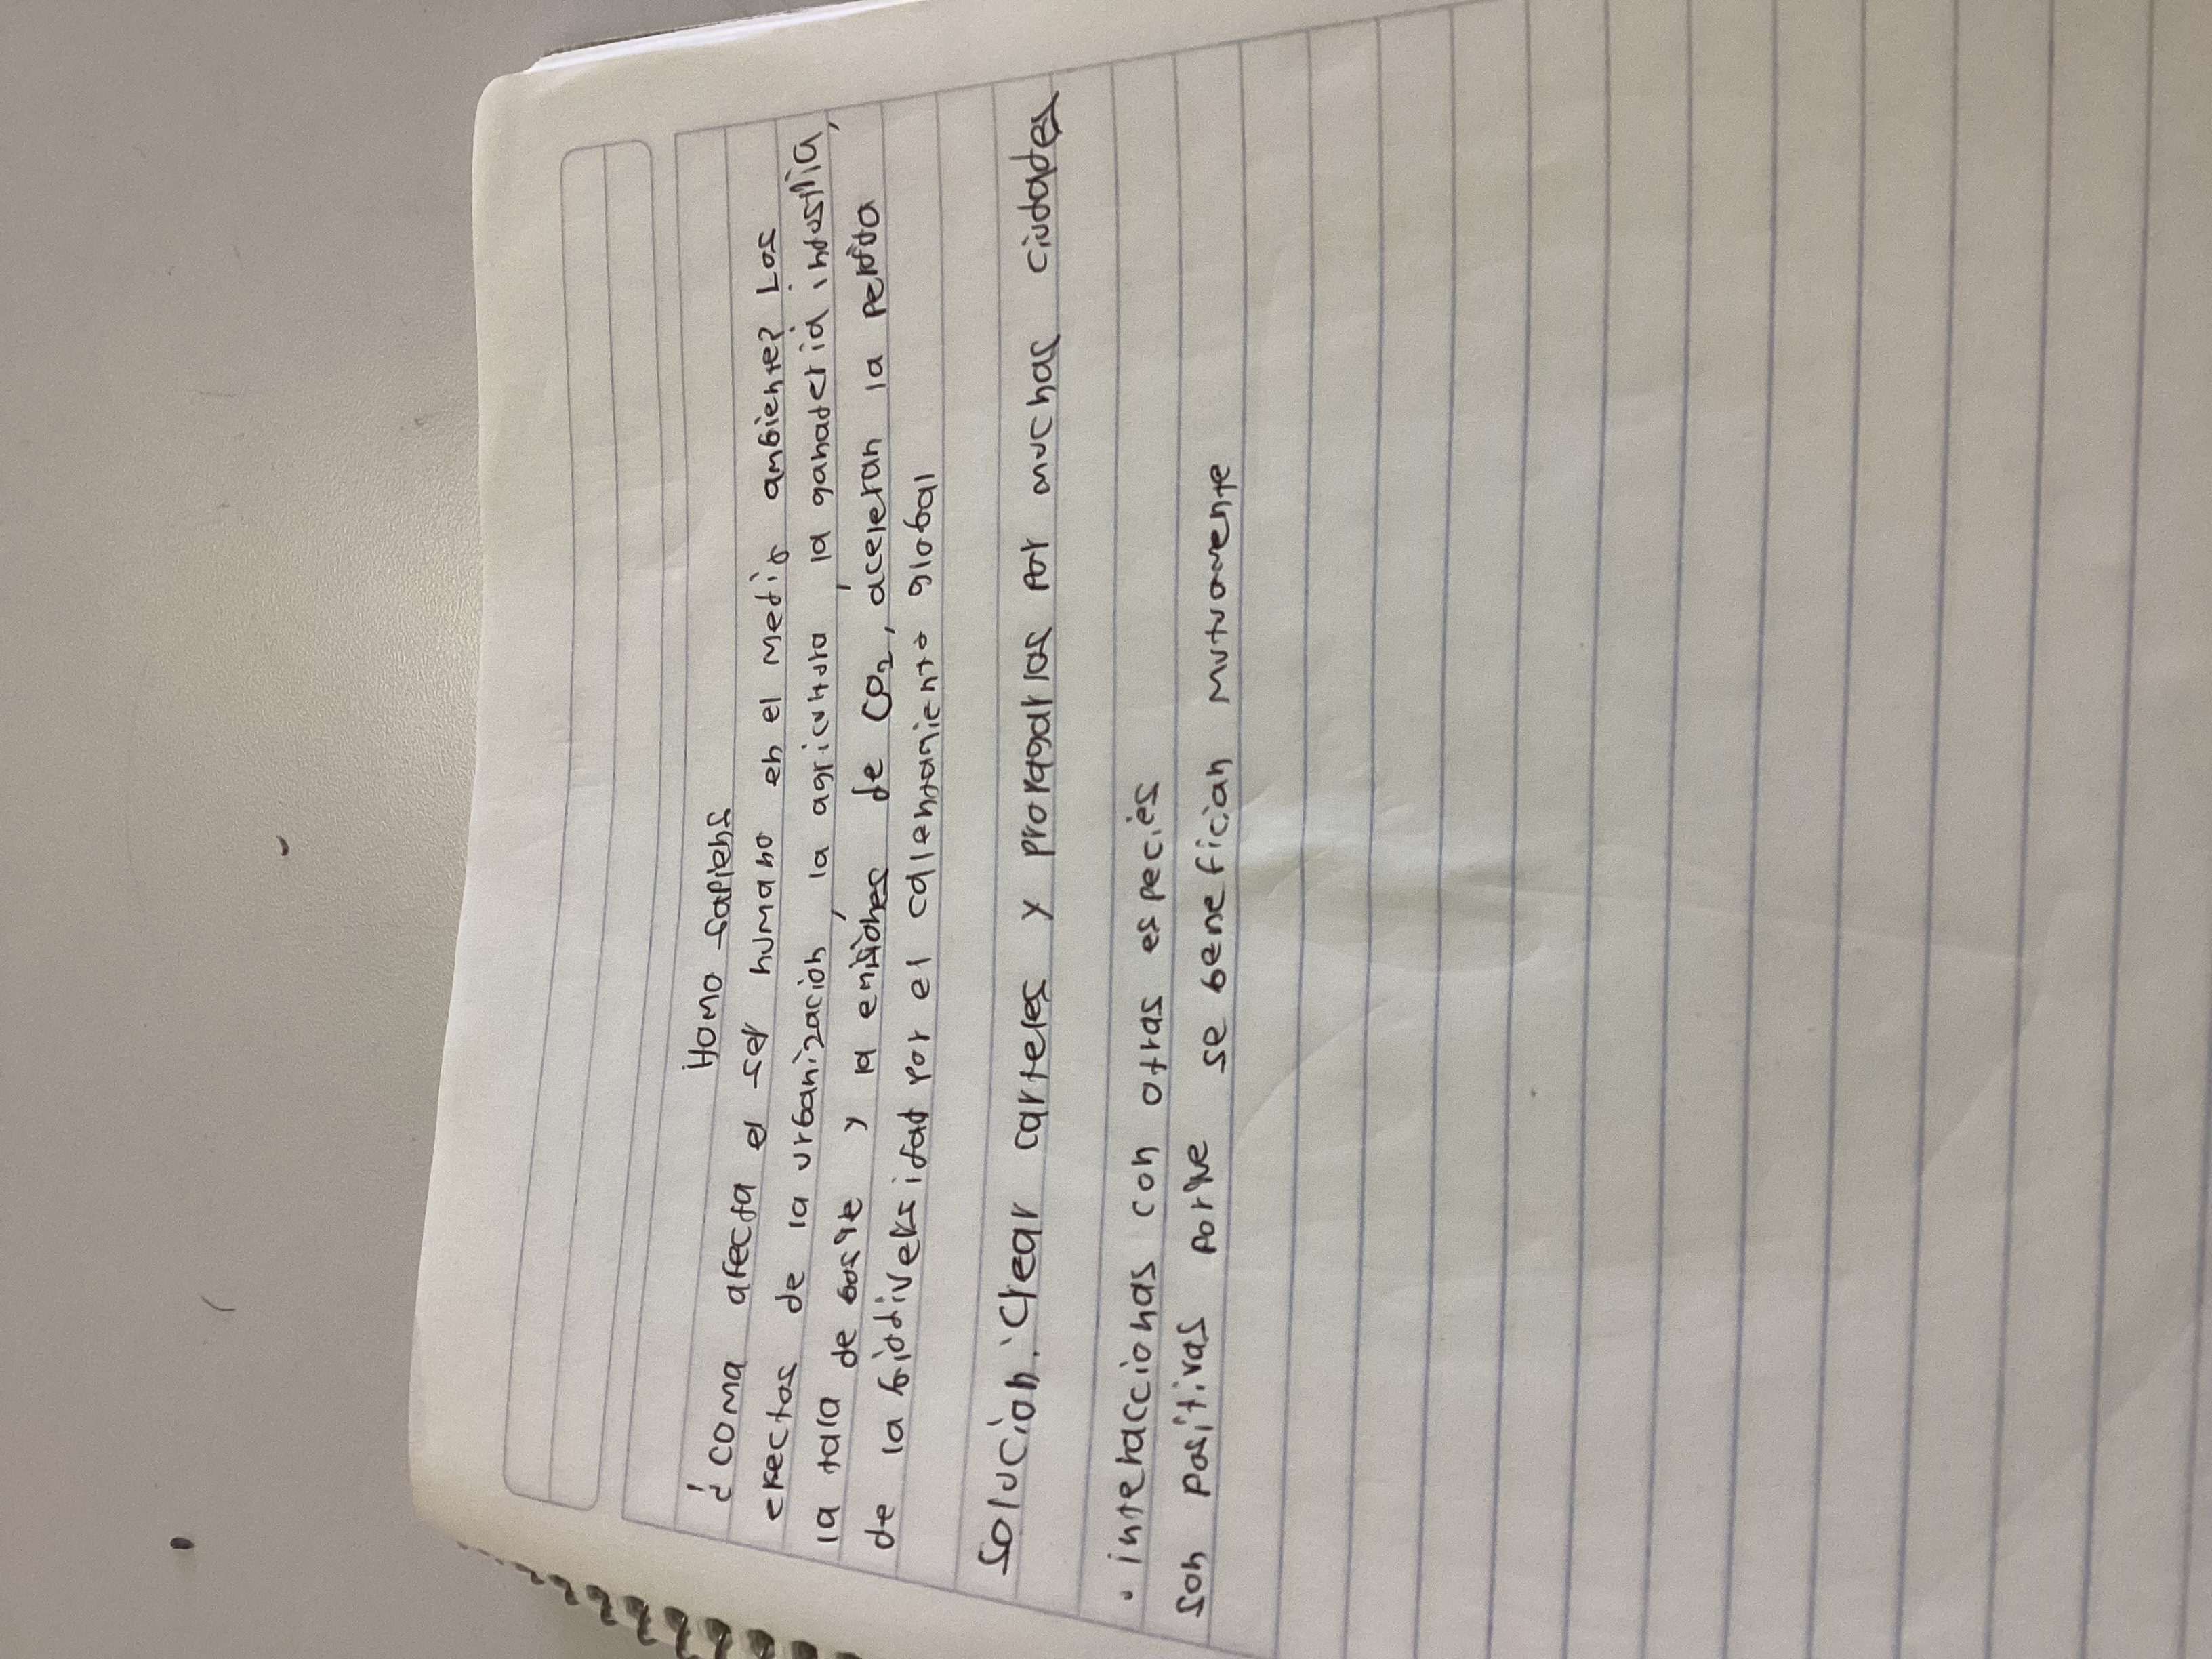 Homo sapiens
¿coma afecta el ser humano en el medio ambiente? Los
efectos de la urbanización, la agricultura, la ganaderia industria,
la tala de bosqe y la emisiones de CO₂, aceleran la perdida
de la biodiversidad por el calentamiento global
Solución: Crear carteles y propagarlos por muchas ciudades
• interaccionas con otras especies
son positivas porqe se benefician mutuamente